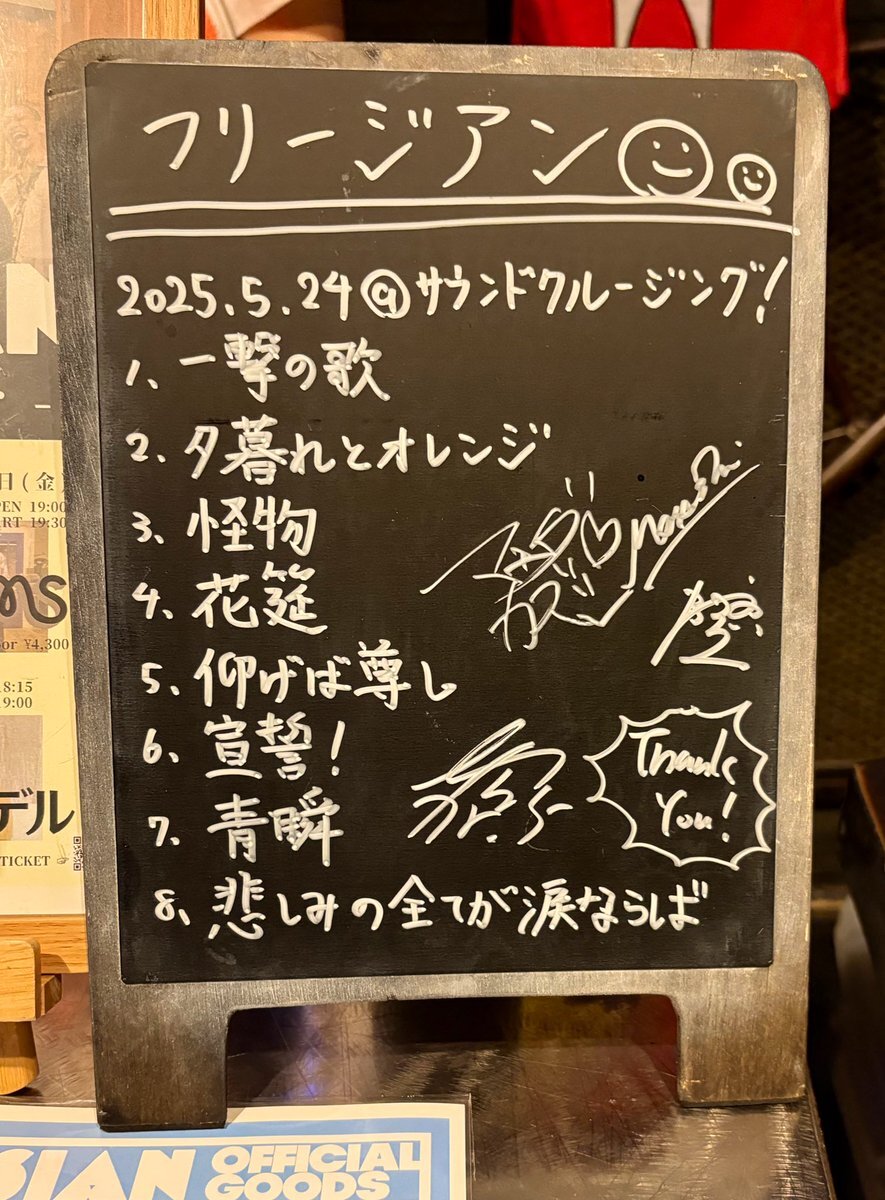 フリージアン
2025.5.24@サウンドクルージング!
1、一撃の歌
2、夕暮れとオレンジ
3、怪物
4、花筵
5、仰げば尊し
6、宣誓!
7、青瞬
8、悲しみの全てが涙ならば
Thank
You!
日(金)
PEN 19:00
ART 19:30
ms
or ¥4,300
18:15
19:00
デル
TICKET
SIAN OFFICIAL
GOODS